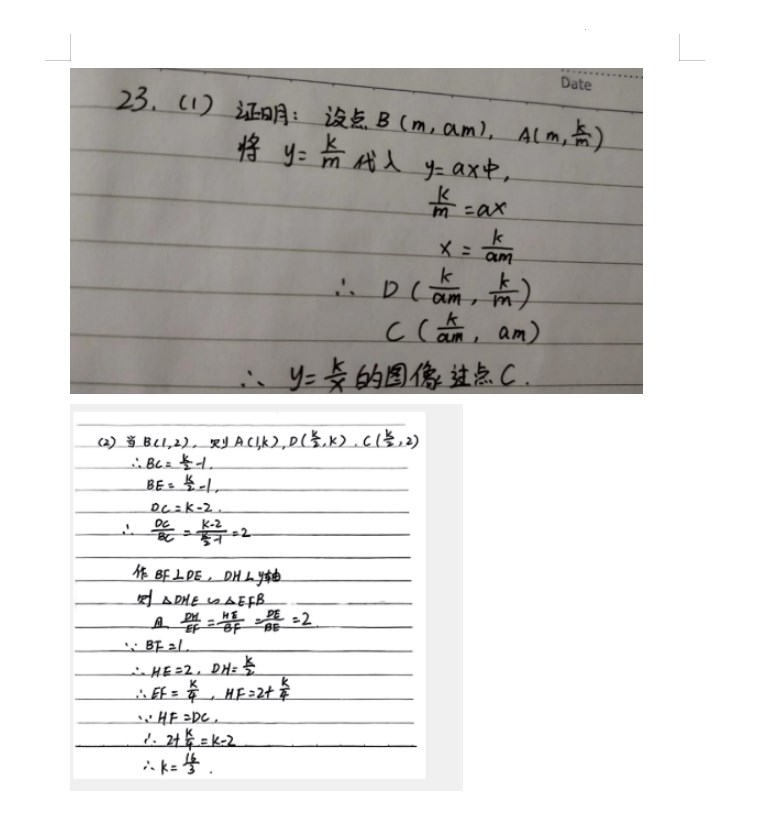 Date
23. (1) 证明: 设点 B (m, am), A(m, k/m)
将 y= k/m 代入 y=ax中,
k/m =ax
x = k/am
∴ D ( k/am , k/m )
C ( k/am , am)
∴ y= k/x 的图像过点 C .
(2) 当 B(1,2), 则 A(1,k), D( k/2 ,k) . C( k/2 ,2)
∴BC= k/2 -1.
BE= k/2 -1,
DC=k-2.
∴ DC/BC = k-2 / k/2 -1 =2
作 BF⊥DE, DH⊥y轴
则 △DHE ∽ △EFB
且 DH/EF = HE/BF = DE/BE =2
∵ BF=1.
∴ HE=2, DH= k/2
∴ EF= k/4 , HF=2+ k/4
∵ HF=DC,
∴ 2+ k/4 =k-2
∴ k= 16/3 .